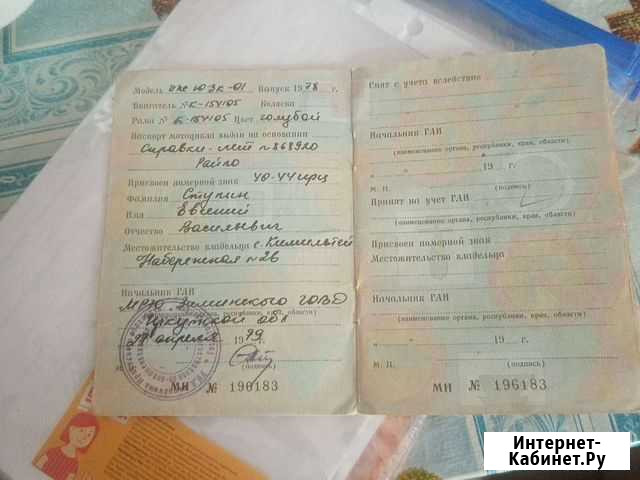 Модель иж ЮЗК-01 Выпуск 1978 г.
Двигатель № К-154105 Коляска
Рама № К-154105 Цвет голубой
Паспорт мотоцикла выдан на основании
Справки-счет № 868920
Райпо
Присвоен номерной знак 40-44 ирц
Фамилия Ступин
Имя Евгений
Отчество Васильевич
Местожительство владельца с. Кимильтей
Набережная № 26
Начальник ГАИ
Зиминского ГОВД
Иркутской обл
апреля 1979 г.
(подпись)
МИ № 196183
Снят с учета вследствие
Начальник ГАИ
(наименование органа, республики, края, области)
" " 19 г.
М. П. (подпись)
Принят на учет ГАИ
(наименование органа, республики, края, области)
Присвоен номерной знак
Местожительство владельца
Начальник ГАИ
(наименование органа, республики, края, области)
" " 19 г.
М. П. (подпись)
МИ № 196183
Интернет-
Кабинет.Ру